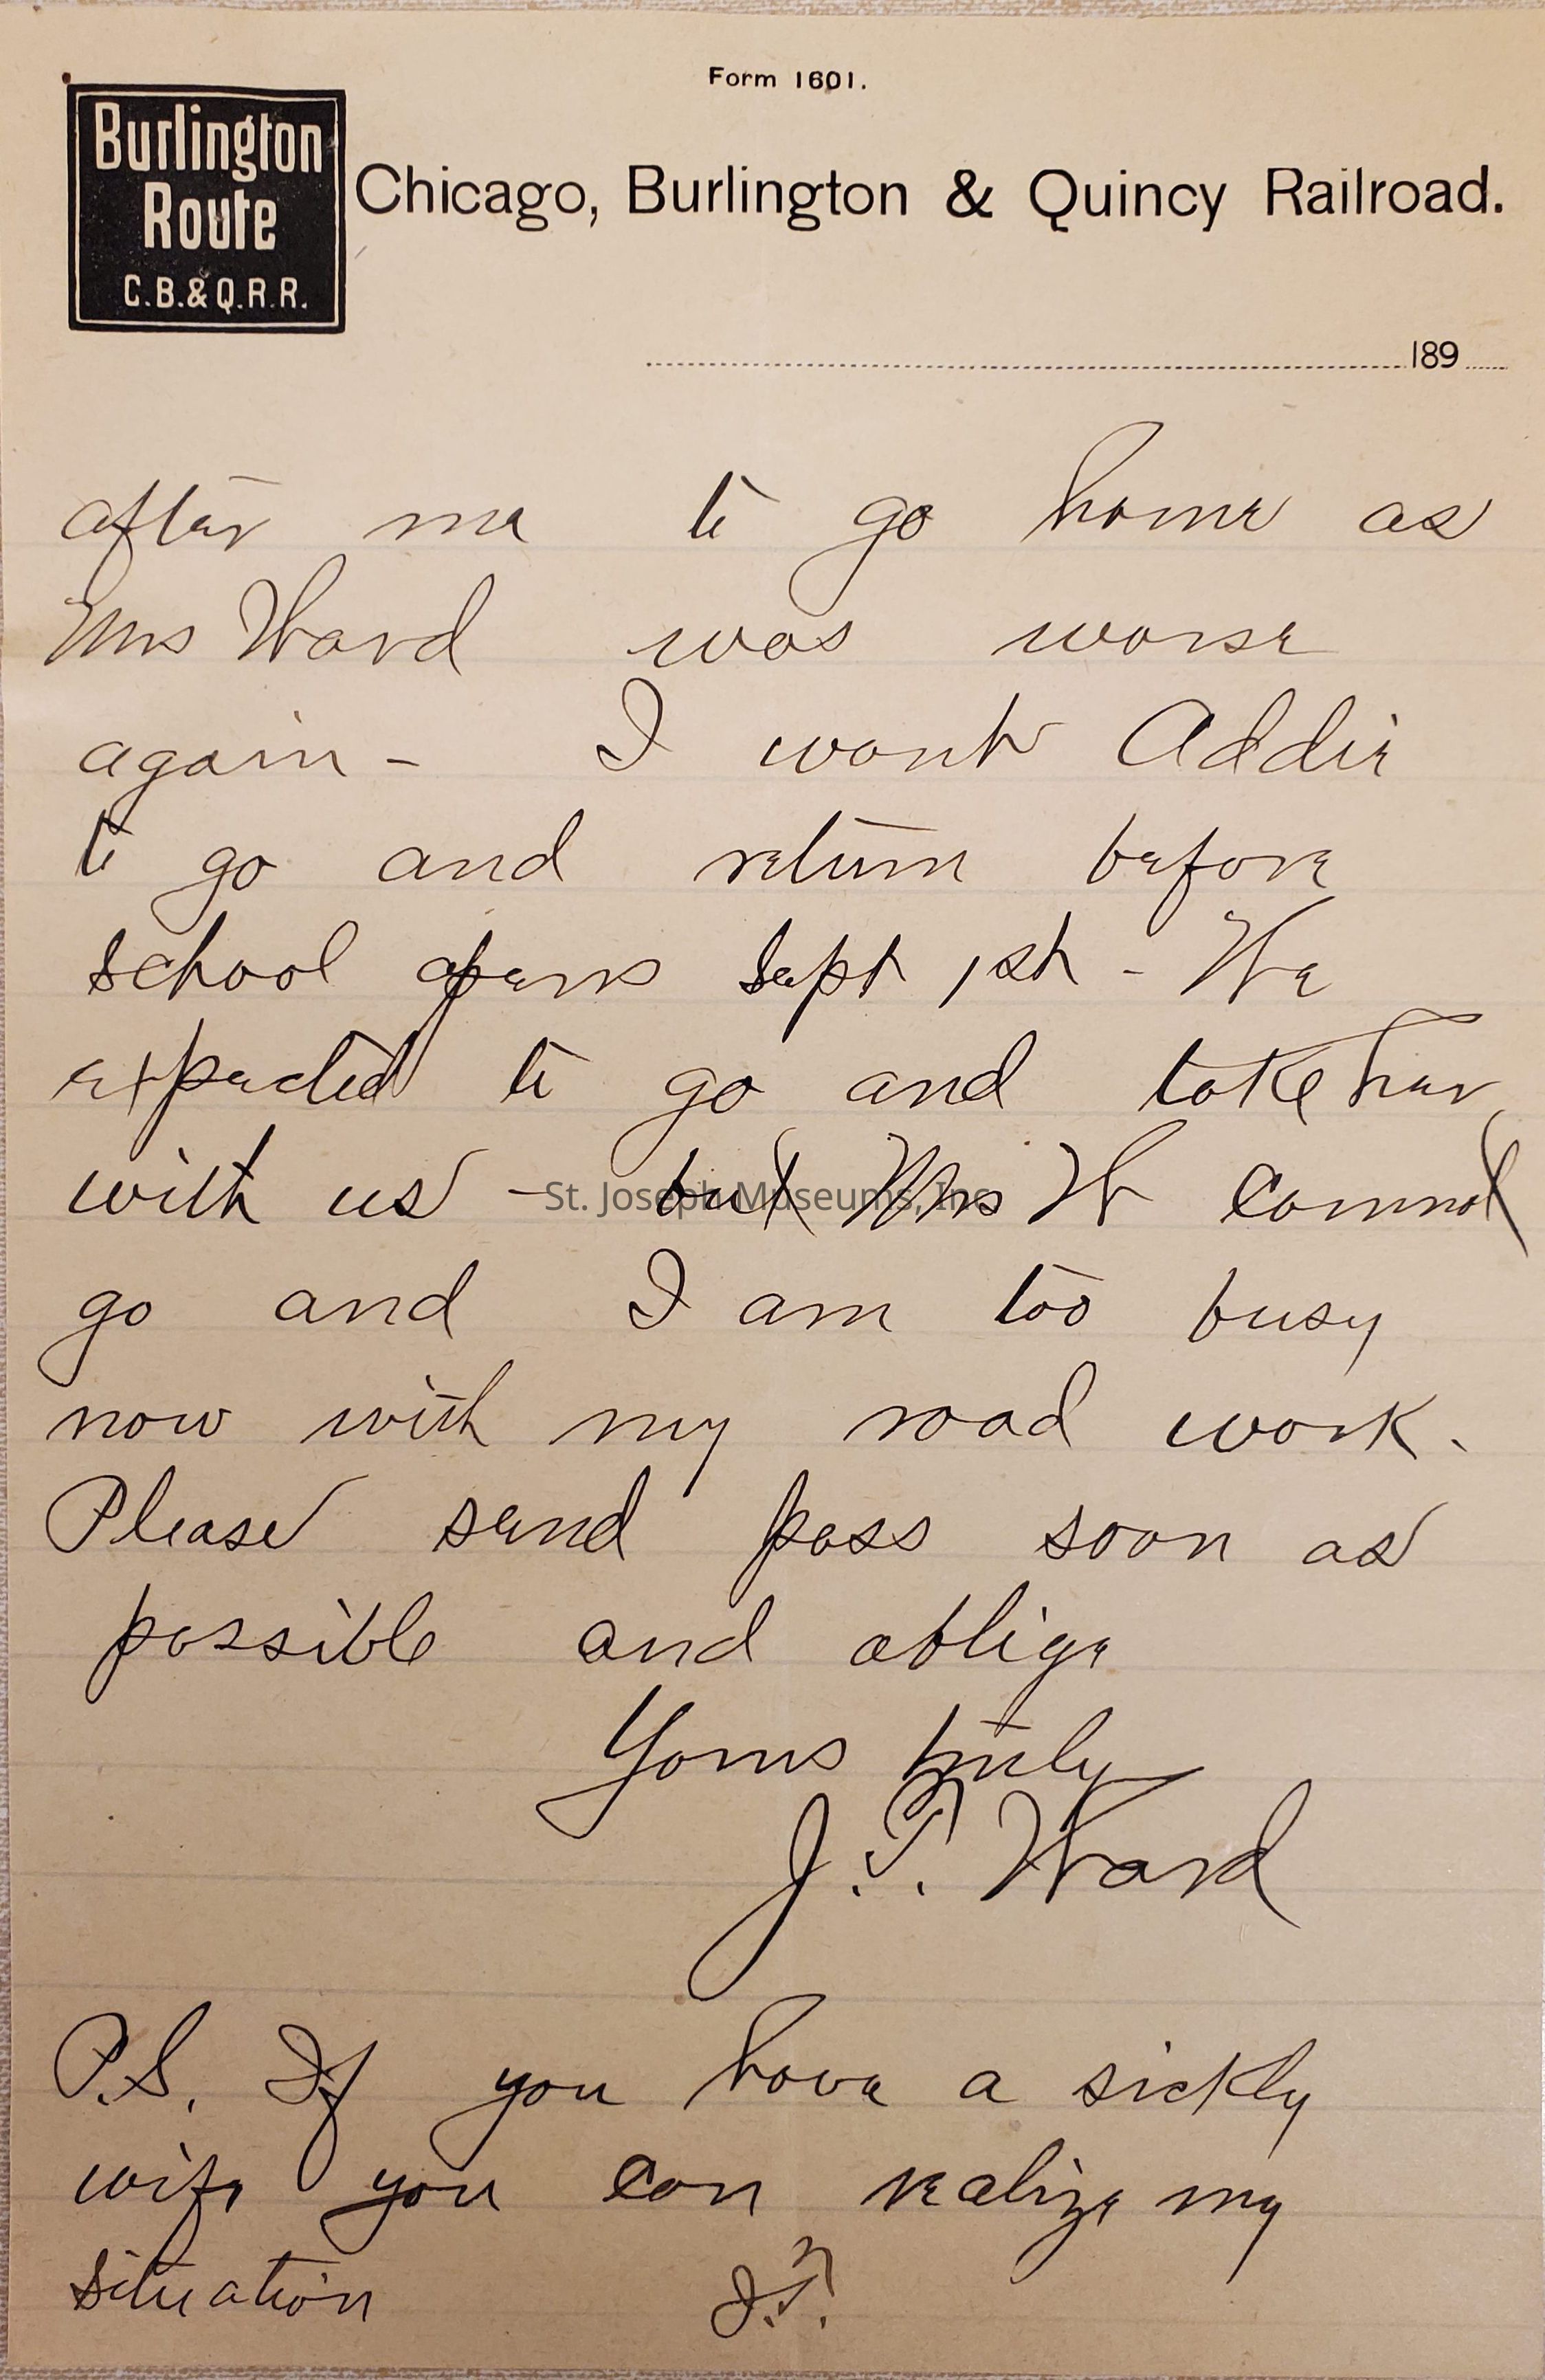 Form 1601.
Burlington
Route
C.B.&Q.R.R.
Chicago, Burlington & Quincy Railroad.
189
after me to go home as
Mrs Ward was worse
again - I want Addie
to go and return before
school opens Sept 1st - We
expected to go and take her
with us - but Mrs W cannot
St. Joseph Museums, Inc
go and I am too busy
now with my road work.
Please send pass soon as
possible and oblige
Yours truly
J.T. Ward
P.S. If you have a sickly
wife you can realize my
situation J.T.